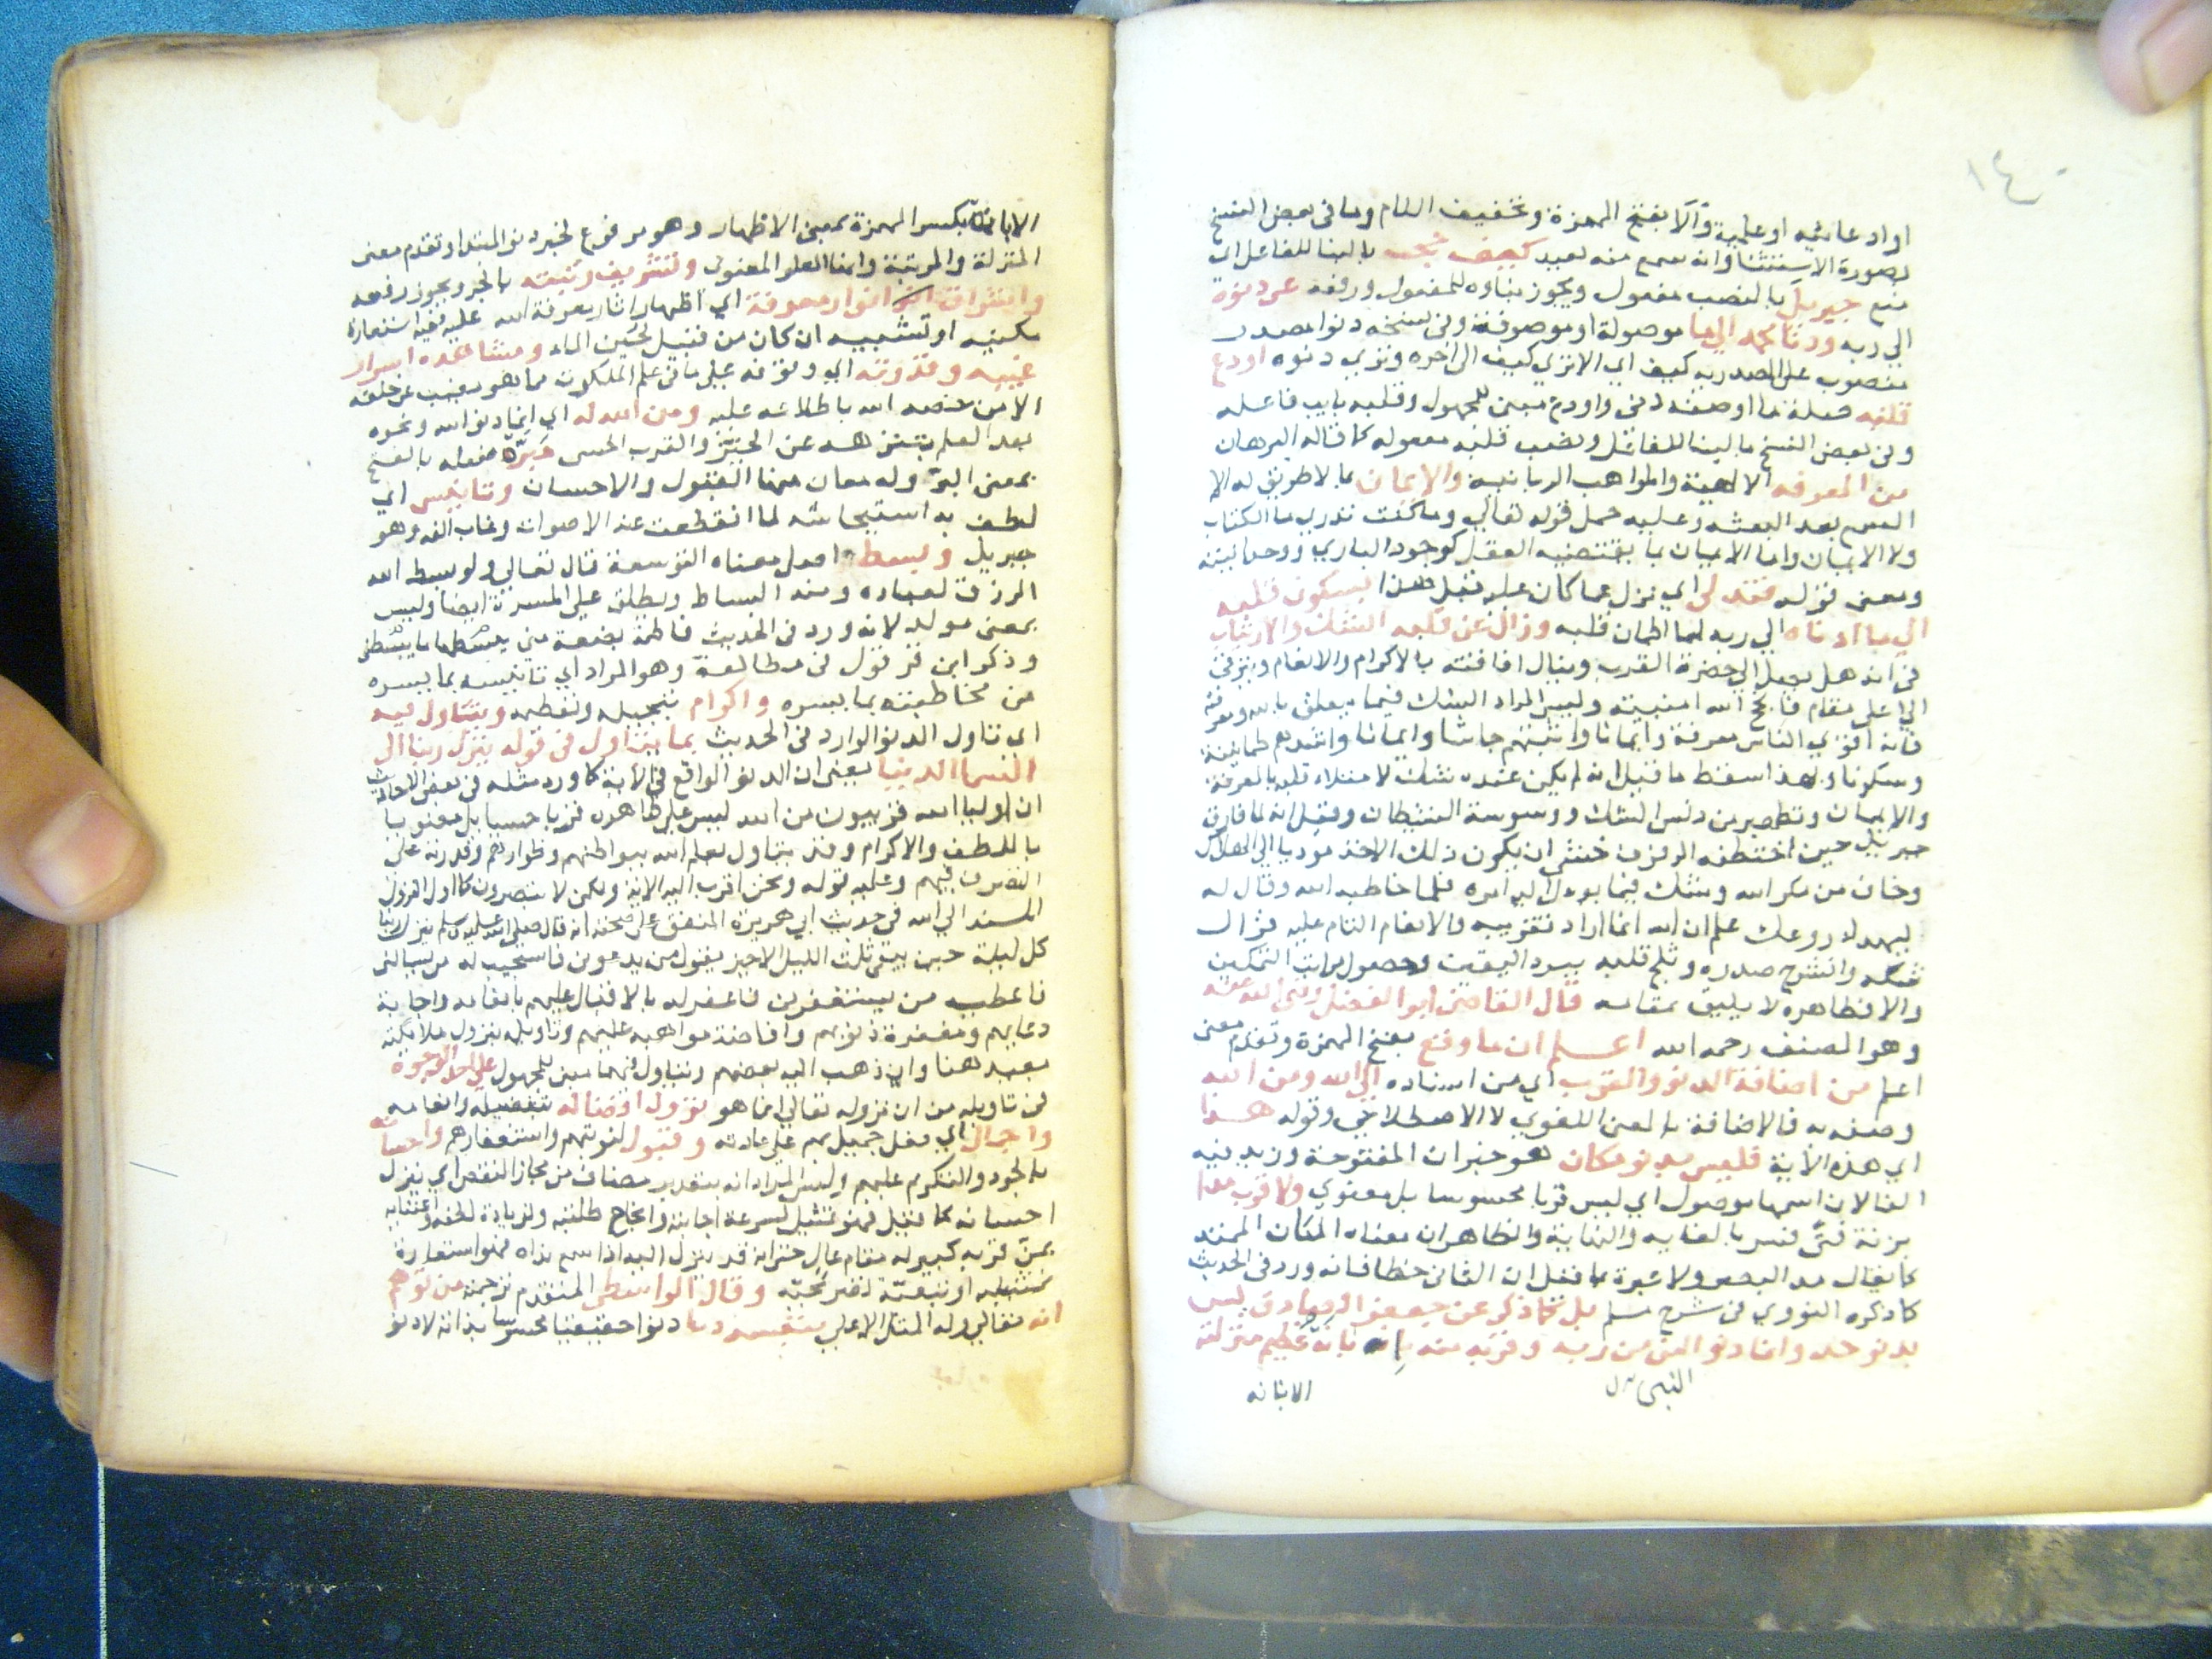 ١٤٠
او ادعائيه او علمية وألا بفتح الهمزة وتخفيف اللام وما في بعض النسخ
بصورة الاستثنا وانه سمع منه بعيد كيف حجب بالبنا للفاعل اي
منع جبريل بالنصب مفعول ويجوز بناوه للمفعول ورفعه عن دنوه
الي ربه ودنا محمد الي ما موصولة او موصوفة وفي نسخه دنوا مصدر
منصوب علي المصدريه كيف اي الا تري كيف الي اخره وتري دنوه اودع
قلبه صلة ما او صفه لها واودع مبني للمجهول وقلبه نايب فاعله
وفي بعض النسخ بالبنا للفاعل ونصب قلبه مفعوله كما قاله البرهان
من المعرفه الالهية والمواهب الربانيه والايمان بما لا طريق له الا
السمع بعد البعثه وعليه حمل قوله تعالي وما كنت تدري ما الكتاب
ولا الايمان واما الايمان بما يقتضيه العقل كوجود الباري ووحدانيته
ومعني قوله فتدلي اي نزل عما كان عليه قبل هذا بسكون قلبه
الي ما ادناه الي ربه لما اطمان قلبه وزال عن قلبه الشك والارتياب
في انه هل يصل الي حضرة القرب وينال افاضته بالاكرام والانعام ويترقي
الي اعلي مقام فانجح الله امنيته وليس المراد الشك فيما يتعلق بالله ومعرفته
فانه اقوي الناس معرفة وايمانا واثبتهم جاشا وايمانا واشدهم طمانينة
وسكونا وبهذا سقط ما قيل انه لم يكن عنده شك لامتلاء قلبه بالمعرفة
والايمان وتطهيره من دنس الشك ووسوسة الشيطان وقيل انه لما فارق
جبريل حين اختطفه الرفرف خشي ان يكون ذلك الاخذ موديا الي الهلاك
وخاف من مكر الله وشك فيما يوول اليه امره فلما خاطبه الله وقال له
ليهدا روعك علم ان الله انما اراد تقريبه والانعام التام عليه فزال
شكه وانشرح صدره وثلج قلبه ببرد اليقين وحصول مراتب التمكين
والا فظاهره لا يليق بمقامه قال القاضي ابو الفضل رضي الله عنه
وهو المصنف رحمه الله اعلم ان ما وقع بفتح الهمزة وتقدم معني
اعلم من اضافة الدنو والقرب اي من اسناده الي الله ومن الله
وصفه به فالاضافة بالمعني اللغوي لا الاصطلاحي وقوله هنا
اي هذه الاية فليس بدنو مكان هو خبر ان المفتوحة وزيد فيه
الفا لان اسمها موصول اي ليس قربا محسوسا بل معنوي ولا قرب مدا
بزنة فتي فسر بالغايه والنهاية والظاهر ان معناه المكان الممتد
كما يقال مد البصر ولا عبرة بما قيل ان الثاني خطا فانه ورد في الحديث
كما ذكره النووي في شرح مسلم بل كما ذكر عن جعفر الصادق ليس
بدنو حد وانما دنو النبي من ربه وقربه منه بانه عظيم منزلته
النبي
الابانه
الابانة بكسر الهمزة بمعني الاظهار وهو مرفوع لخبر دنو المبتدا وتقدم معني
المنزلة والمرتبة وانها العلو المعنوي وتشريف رتبته بالجر ويجوز رفعه
واشراق انوار معرفة اي اظهار اثار معرفة الله عليه ففيه استعارة
مكنيه او تشبيه ان كان من قبيل لجين الماء ومشاهده اسرار
غيبه وقدرته اي وقوفه علي ما في علم الملكوت مما هو مغيب عن خلقه
الا من خصه الله باطلاعه عليه ومن الله له اي انما دنو الله ونحوه
بعد العلم بتنزهه عن الحيز والقرب الحسي مبرة مفعله بالفتح
بمعني البر وله معان منها القبول والاحسان وتانيس اي
لطف به استيحاشه لما انقطعت عنه الاصوات وغاب الفه وهو
جبريل وبسط اصل معناه التوسعة قال تعالي ولو بسط الله
الرزق لعباده ومنه البساط ويطلق علي المسرة ايضا وليس
بمعني مولد لانه ورد في الحديث فاطمة بضعة مني يبسطها ما يبسطني
وذكر ابن قرقول في مطالعه وهو المراد اي تانيسه بما يسره
من مخاطبته بما يسره واكرام بتبجيله وتعظيمه ويتاول فيه
اي تاول الدنو الوارد في الحديث بما يتاول في قوله ينزل ربنا الي
السما الدنيا يعني ان الدنو الواقع في الاية كما ورد مثله في بعض الاحاديث
ان اوليا الله قريبون من الله ليس علي ظاهره قربا حسيا بل معنويا
باللطف والاكرام وقد يتاول بعلم الله ببواطنهم وظواهرهم وقدرته علي
التصرف فيهم وعليه قوله ونحن اقرب اليه الاية ولكن لا تبصرون كما اول النزول
المسند الي الله في حديث ابي هريرة المتفق علي صحته انه قال صلي الله عليه وسلم ينزل ربنا
كل ليلة حين يبقي ثلث الليل الاخير يقول من يدعوني فاستجيب له من يسالني
فاعطيه من يستغفرني فاغفر له بالاقبال عليهم بانعامه واجابة
دعايهم ومغفرة ذنوبهم وافاضة مواهبه عليهم وتاويله بنزول ملايكته
بعيد هنا وان ذهب اليه بعضهم ويتاول فيهما مبني للمجهول علي احد الوجوه
في تاويله من ان نزوله تعالي انما هو نزول افضاله بتفضيله وانعامه
واجمال اي فعل جميل بهم علي عادته وقبول لتوبتهم واستغفارهم واحسانه
بالجود والتكرم عليهم وليس المراد انه بتقدير مضاف من مجاز النقص اي ينزل
احسانه كما قيل فهو تمثيل لسرعة اجابته وانجاح طلبته ولزيادة لطفه واعتنايه
بمن قربه كبير له مقام عال حتي انه قد ينزل اليه اذا سمع نداه فهو استعارة
تمثيليه او تبعية وقال الواسطي المتقدم ترجمته من توهم
انه تعالي وله المثل الاعلي بنفسه دنا دنوا حقيقيا محسوسا بذاته لا دنو